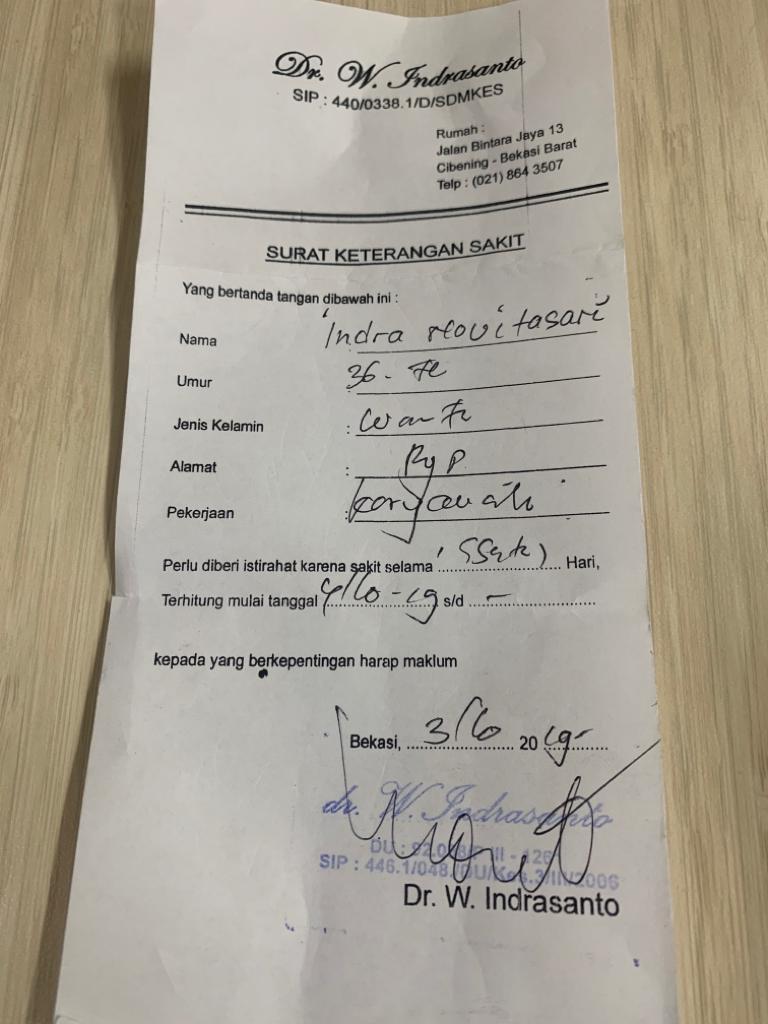 Dr. W. Indrasanto
SIP : 440/0338.1/D/SDMKES
Rumah :
Jalan Bintara Jaya 13
Cibening - Bekasi Barat
Telp : (021) 864 3507
SURAT KETERANGAN SAKIT
Yang bertanda tangan dibawah ini :
Nama Indra Novitasari
Umur 36
Jenis Kelamin :
Alamat :
Pekerjaan : karyawati
Perlu diberi istirahat karena sakit selama Hari,
Terhitung mulai tanggal s/d -
kepada yang berkepentingan harap maklum
Bekasi, 20
dr. W. Indrasanto
Dr. W. Indrasanto